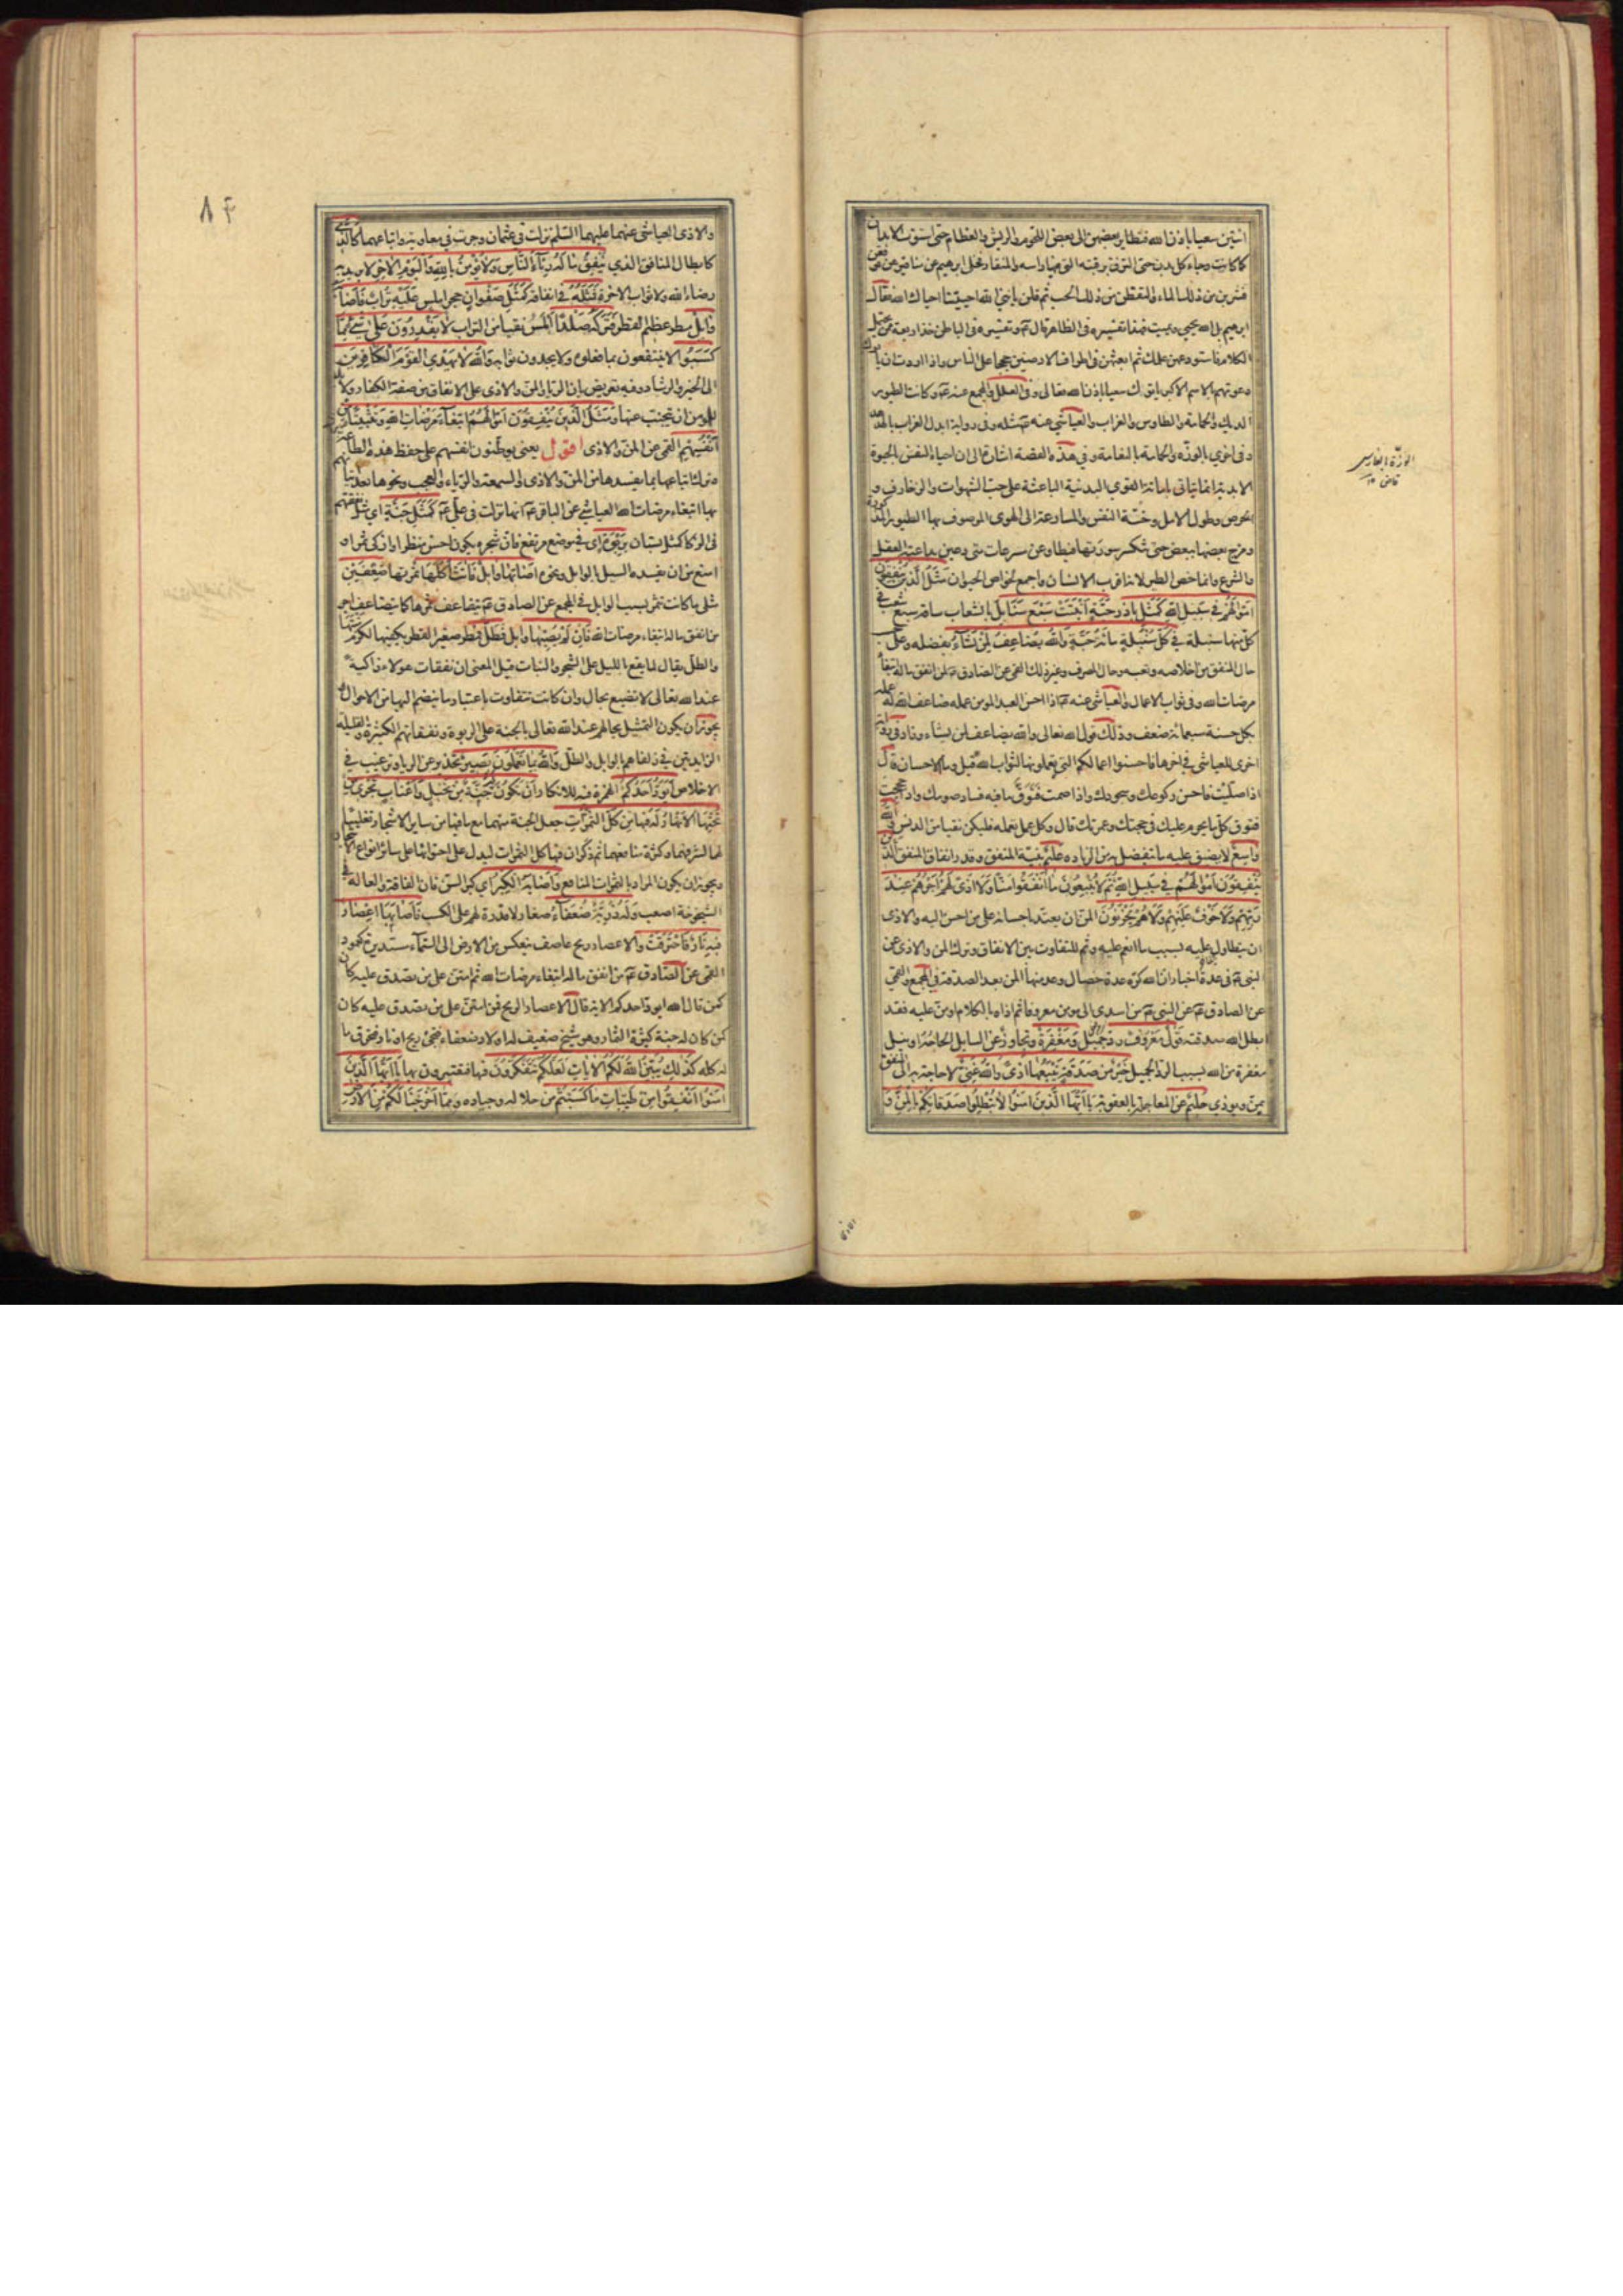 اتين سعيا باذن الله فتطاير بعضهن الى بعض اللحوم والريش والعظام حتى استوت الابدان
كما كانت وجاء كل بدن حتى التزق برقبته التى فيها راسه والمنقار فخلى ابرهيم عن مناقيرهن فوقعن
فشربن من ذلك الماء والتقطن من ذلك الحب ثم قلن يا نبى الله احييتنا احياك الله فقال
ابرهيم بل الله يحيي ويميت فهذا تفسيره فى الظاهر قال ع وتفسيره فى الباطن خذ اربعة ممن يحتمل
الكلام فاستودعهن علمك ثم ابعثهن فى اطراف الارضين حججا على الناس واذا اردت ان ياتوك
دعوتهم بالاسم الاكبر ياتونك سعيا باذن الله تعالى وفى العلل والمجمع عنه ع وكانت الطيور
الديك والحمامة والطاوس والغراب والعياشى عنه ع مثله وفى رواية ابدل الغراب بالهدهد
وفى اخرى بالوزة والحمامة بالنعامة وفى هذه القصة اشارة الى ان احياء النفس بالحيوة
الابدية انما يتاتى باماتة القوى البدنية الباعثة على حب الشهوات والزخارف و
الحرص وطول الامل وخسة النفس والمسارعة الى الهوى الموصوف بها الطيور المذكورة
ومزج بعضها ببعض حتى تنكسر سورتها فيطاوعن مسرعات متى دعين بداعية العقل
والشرع وانما خص الطير لانه اقرب الى الانسان واجمع لخواص الحيوان مَثَلُ الَّذينَ يُنفِقُونَ
اَموالَهُم فى سَبيلِ اللهِ كَمَثَلِ باذر حَبَّةٍ اَنبَتَت سَبعَ سَنابِلَ بانشعاب ساقه سبع شعب فى
كل منها سنبلة فى كُلِّ سُنبُلَةٍ مِائَةُ حَبَّةٍ وَاللهُ يُضاعِفُ لِمَن يَشاءُ بفضله وعلى
حال المنفق من اخلاصه وتعبه وحال المصرف وغير ذلك القمى عن الصادق ع لمن انفق ماله ابتغاء
مرضات الله وفى ثواب الاعمال والعياشى عنه ع اذا احسن العبد المومن عمله ضاعف الله له عمله
بكل حسنة سبعمائة ضعف وذلك قول الله تعالى والله يضاعف لمن يشاء وزاد فى رواية
اخرى للعياشى فى اخرها فاحسنوا اعمالكم التى تعملونها لثواب الله قيل وما الاحسان قال
اذا صليت فاحسن ركوعك وسجودك واذا صمت فتوق ما فيه فساد صومك واذا حججت
فتوق كل ما يحرم عليك فى حجتك وعمرتك قال وكل عمل تعمله فليكن نقيا من الدنس وَاللهُ
واسِعٌ لا يضيق عليه ما يتفضل به من الزيادة عَليمٌ بنية المنفق وقدر انفاق المنفق الَّذينَ
يُنفِقُونَ اَموالَهُم فى سَبيلِ اللهِ ثُمَّ لا يُتبِعُونَ ما اَنفَقُوا مَنّاً وَلا اَذىً لَهُم اَجرُهُم عِندَ
رَبِّهِم وَلا خَوفٌ عَلَيهِم وَلا هُم يَحزَنُونَ المن ان يعتد باحسانه على من احسن اليه والاذى
ان يتطاول عليه بسبب ما انعم عليه وثم للتفاوت بين الانفاق وترك المن والاذى عن
النبى ص فى عدة اخبار ان الله كره عدة خصال وعد منها المن بعد الصدقة فى المجمع والقمى
عن الصادق ع عن النبى ص من اسدى الى مومن معروفا ثم اذاه بالكلام او من عليه فقد
ابطل الله صدقته قَولٌ مَعرُوفٌ رد جميل وَمَغفِرَةٌ وتجاوز عن السائل الحاحه او نيل
مغفرة من الله بسبب الرد الجميل خَيرٌ مِن صَدَقَةٍ يَتبَعُها اَذىً وَاللهُ غَنِىٌّ لا حاجة به الى المنفق
بمن ويوذى حَليمٌ عن المعاجلة بالعقوبة يا اَيُّهَا الَّذينَ امَنُوا لا تُبطِلُوا صَدَقاتِكُم بِالمَنِّ وَ
الوزة بالفارسى
قاض
٨٤
والاذى العياشى عنهما عليهما السلم نزلت فى عثمان وجرت فى معاوية واتباعهما كَالَّذى
كابطال المنافق الذى يُنفِقُ مالَهُ رِئاءَ النّاسِ وَلا يُؤمِنُ بِاللهِ وَاليَومِ الاخِرِ لا يريد به
رضاء الله ولا ثواب الاخرة فَمَثَلُهُ فى انفاقه كَمَثَلِ صَفوانٍ حجر املس عَلَيهِ تُرابٌ فَاَصابَهُ
وابِلٌ مطر عظيم القطر فَتَرَكَهُ صَلداً املس نقيا من التراب لا يَقدِرُونَ عَلى شَىءٍ مِمّا
كَسَبُوا لا ينتفعون بما فعلوه ولا يجدون ثوابه وَاللهُ لا يَهدِى القَومَ الكافِرينَ
الى الخير والرشاد وفيه تعريض بان الرياء والمن والاذى على الانفاق من صفة الكفار ولا بد
للمومن ان يتجنب عنها وَمَثَلُ الَّذينَ يُنفِقُونَ اَموالَهُمُ ابتِغاءَ مَرضاتِ اللهِ وَتَثبيتاً مِن
اَنفُسِهِم القمى عن المن والاذى اقول يعنى يوطنون انفسهم على حفظ هذه الطاعة
وترك اتباعها بما يفسدها من المن والاذى والسمعة والرياء والعجب ونحوها بعد اتيانهم
بها ابتغاء مرضات الله العياشى عن الباقر ع انها نزلت فى على ع كَمَثَلِ جَنَّةٍ اى مثل نفقتهم
فى الزكا كمثل بستان بِرَبوَةٍ اى فى موضع مرتفع فان شجره يكون احسن منظرا وازكى ثمرا و
امنع من ان يفسده السيل بالوابل ونحوه اَصابَها وابِلٌ فَاتَت اُكُلَها ثمرتها ضِعفَينِ
مثلى ما كانت تثمر بسبب الوابل فى المجمع عن الصادق ع يتضاعف ثمرها كما يتضاعف اجر
من انفق ماله ابتغاء مرضات الله فَاِن لَم يُصِبها وابِلٌ فَطَلٌّ فمطر صغير القطر يكفيها لكرم منبتها
والطل يقال لما يقع بالليل على الشجر والنبات قيل المعنى ان نفقات هولاء زاكية
عند الله تعالى لا تضيع بحال وان كانت تتفاوت باعتبار ما ينضم اليها من الاحوال و
يجوز ان يكون التمثيل بحالهم عند الله تعالى بالجنة على الربوة ونفقاتهم الكثيرة والقليلة
الزايدتين فى زلفاهم بالوابل والطل وَاللهُ بِما تَعمَلُونَ بَصيرٌ تحذير عن الرياء وترغيب فى
الاخلاص اَيَوَدُّ اَحَدُكُم الهمزة فيه للانكار اَن تَكُونَ لَهُ جَنَّةٌ مِن نَخيلٍ وَاَعنابٍ تَجرى مِن
تَحتِهَا الاَنهارُ لَهُ فيها مِن كُلِّ الثَّمَراتِ جعل الجنة منهما مع ما فيها من سائر الاشجار تغليبا
لهما لشرفهما وكثرة منافعهما ثم ذكر ان فيها كل الثمرات ليدل على احتوائها على سائر انواع الاشجار
ويجوز ان يكون المراد بالثمرات المنافع وَاَصابَهُ الكِبَرُ اى كبر السن فان الفاقة والعالة فى
الشيخوخة اصعب وَلَهُ ذُرِّيَّةٌ ضُعَفاءُ صغار لا قدرة لهم على الكسب فَاَصابَها اِعصارٌ
فيهِ نارٌ فَاحتَرَقَت والاعصار ريح عاصف ينعكس من الارض الى السماء مستديرة كعمود
القمى عن الصادق ع من انفق ماله ابتغاء مرضات الله ثم امتن على من تصدق عليه كان
كمن قال الله ايود احدكم الاية قال الاعصار الريح فمن امتن على من تصدق عليه كان
كمن كان له جنة كثيرة الثمار وهو شيخ ضعيف له اولاد ضعفاء فتجىء ريح او نار فتحرق ما
له كله كَذلِكَ يُبَيِّنُ اللهُ لَكُمُ الاياتِ لَعَلَّكُم تَتَفَكَّرُونَ فيها فتعتبرون بها يا اَيُّهَا الَّذينَ
امَنُوا اَنفِقُوا مِن طَيِّباتِ ما كَسَبتُم من حلاله وجياده وَمِمّا اَخرَجنا لَكُم مِنَ الاَرضِ